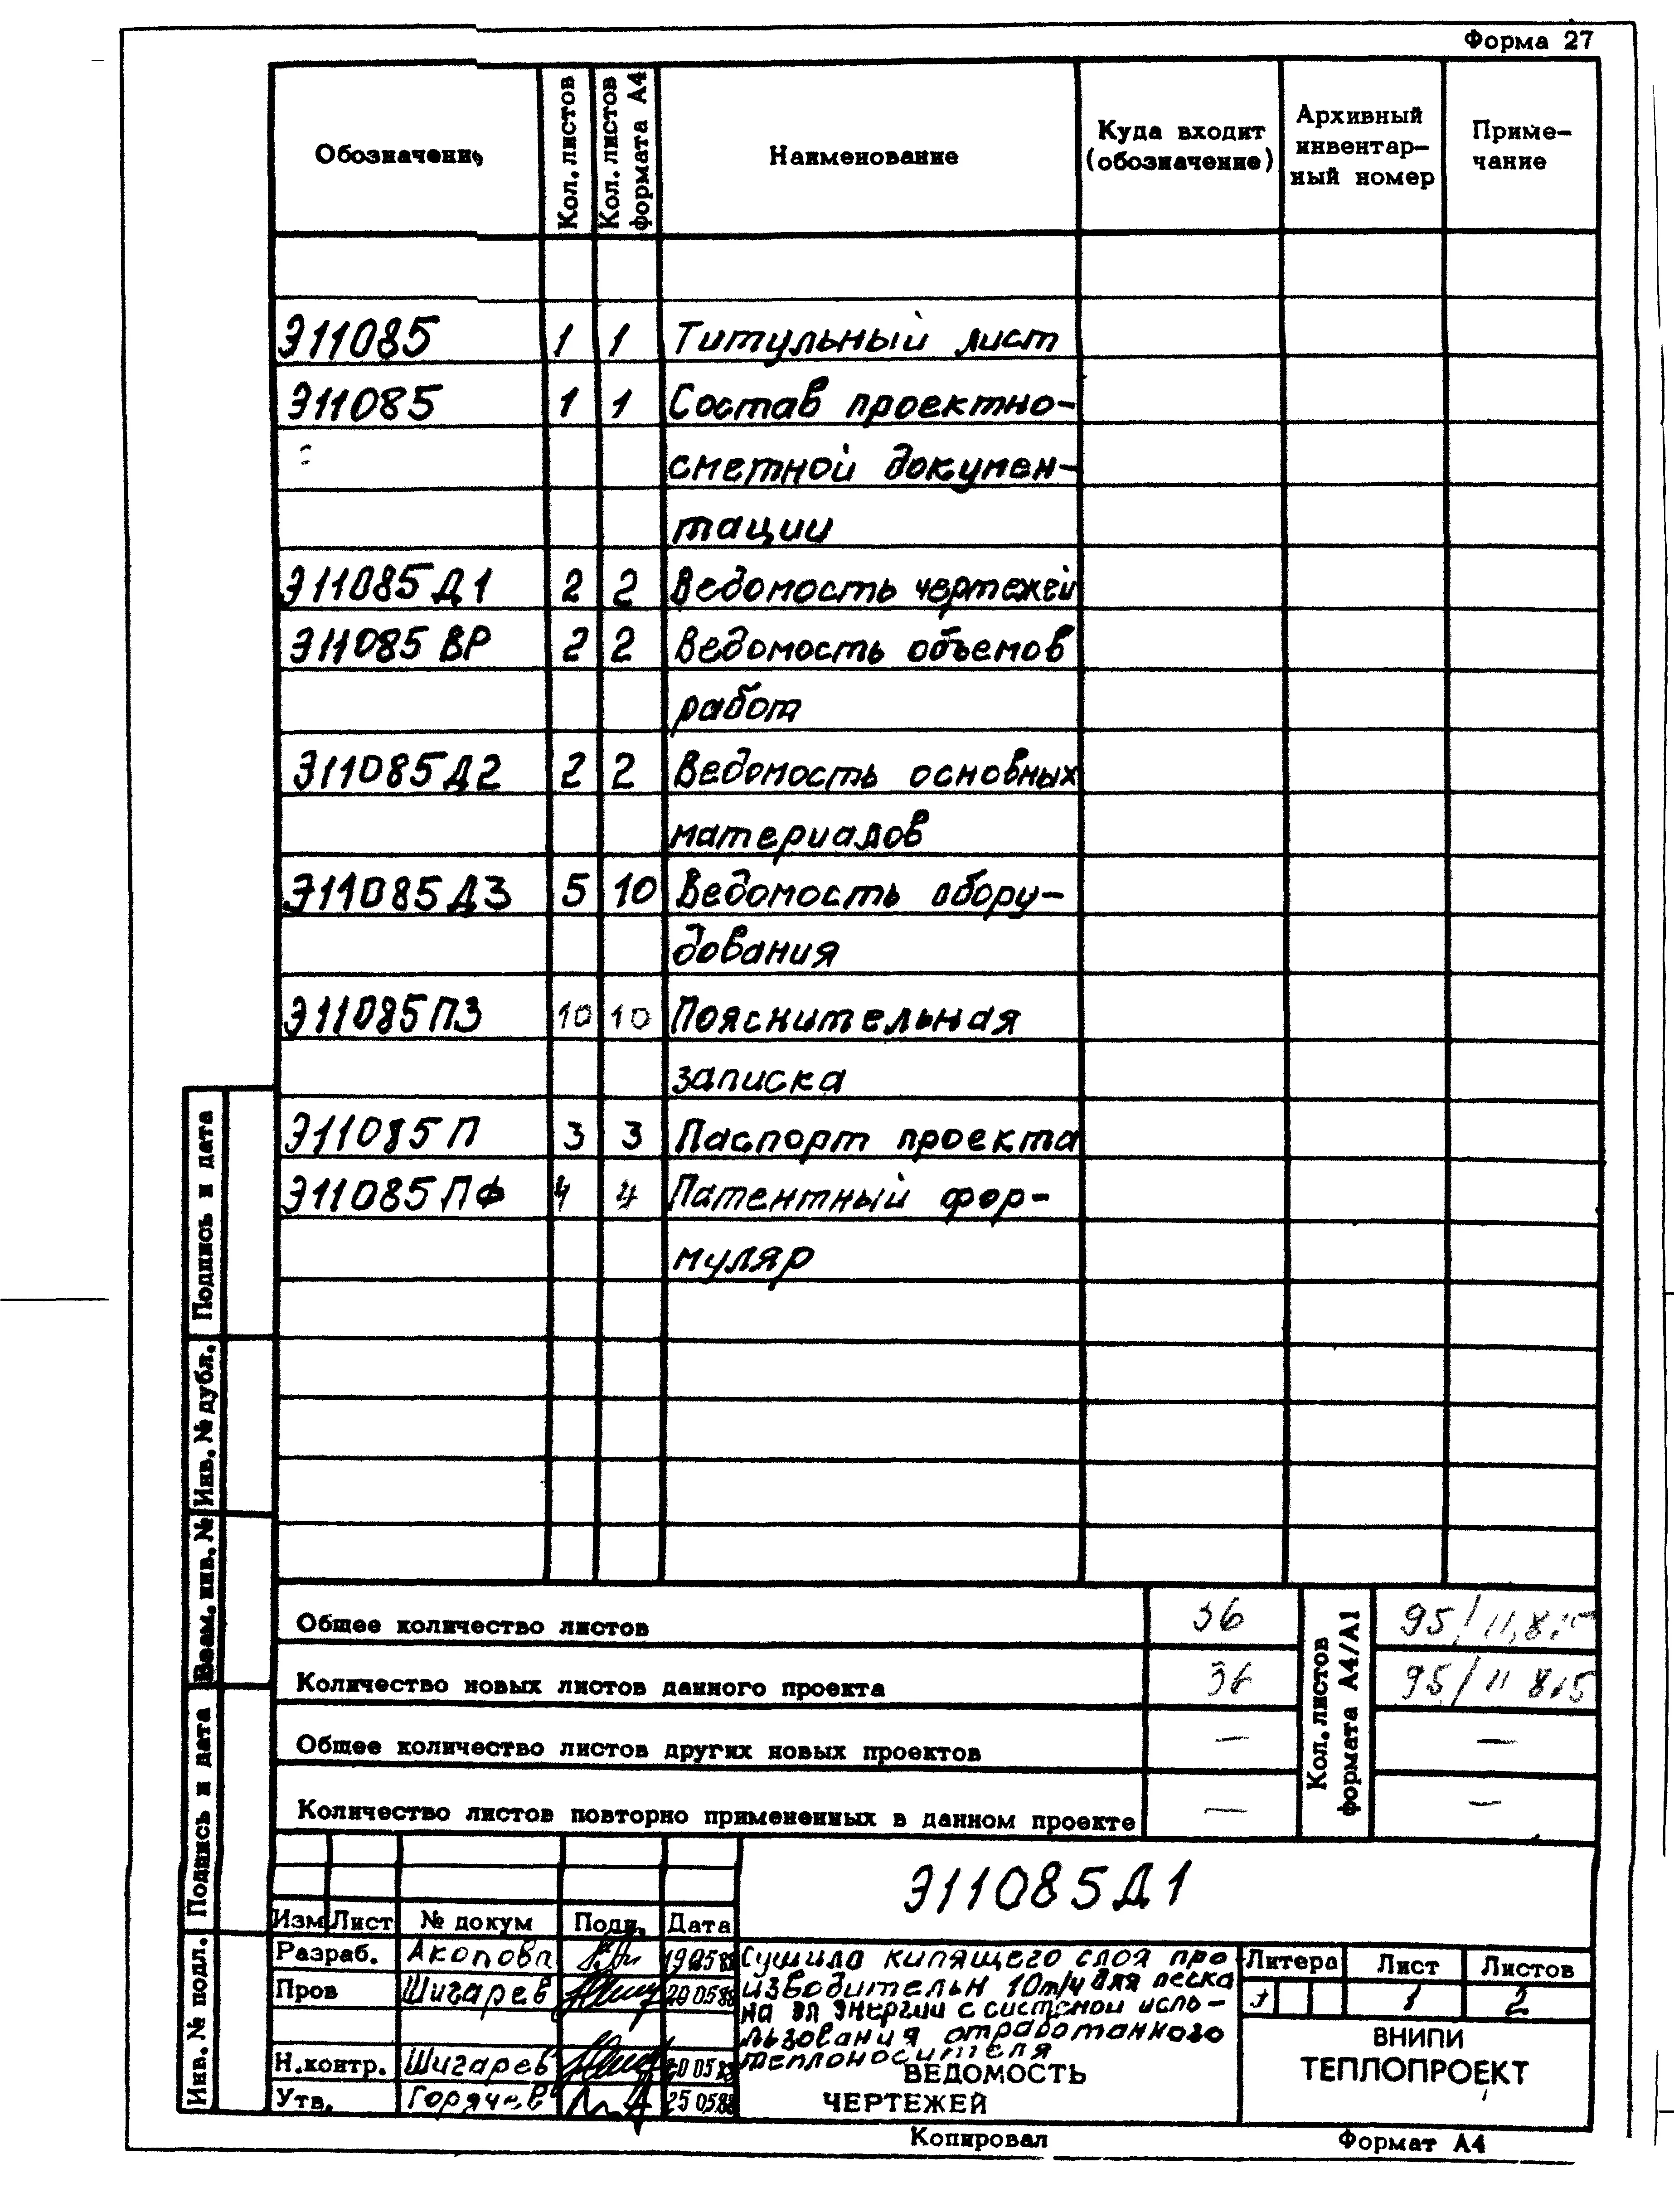 Форма 27
Обозначение
Кол. листов
Кол. листов формата А4
Наименование
Куда входит (обозначение)
Архивный инвентар-ный номер
Приме-чание
Э11085 1 1 Титульный лист
Э11085 1 1 Состав проектно-
сметной докумен-
тации
Э11085 Д1 2 2 Ведомость чертежей
Э11085 ВР 2 2 Ведомость объемов
работ
Э11085 Д2 2 2 Ведомость основных
материалов
Э11085 Д3 5 10 Ведомость обору-
дования
Э11085 ПЗ 10 10 Пояснительная
записка
Э11085 П 3 3 Паспорт проекта
Э11085 ПФ 4 4 Патентный фор-
муляр
Общее количество листов 36
Количество новых листов данного проекта 36
Общее количество листов других новых проектов —
Количество листов повторно примененных в данном проекте —
Кол. листов формата А4/А1
95/11,875
95/11 875
—
—
Подпись и дата
Инв. № дубл.
Взам. инв. №
Подпись и дата
Инв. № подл.
Э11085 Д1
Изм Лист № докум Подп. Дата
Разраб. Акопова
Пров Шигарев 20 05 88
Н.контр. Шигарев 20 05 88
Утв. Горячев 25 05 88
Сушила кипящего слоя про-
изводительн 10т/ч для песка
на эл энергии с системой исполь-
зования отработанного
теплоносителя
ВЕДОМОСТЬ
ЧЕРТЕЖЕЙ
Литера Лист Листов
1 2
ВНИПИ
ТЕПЛОПРОЕКТ
Копировал
Формат А4